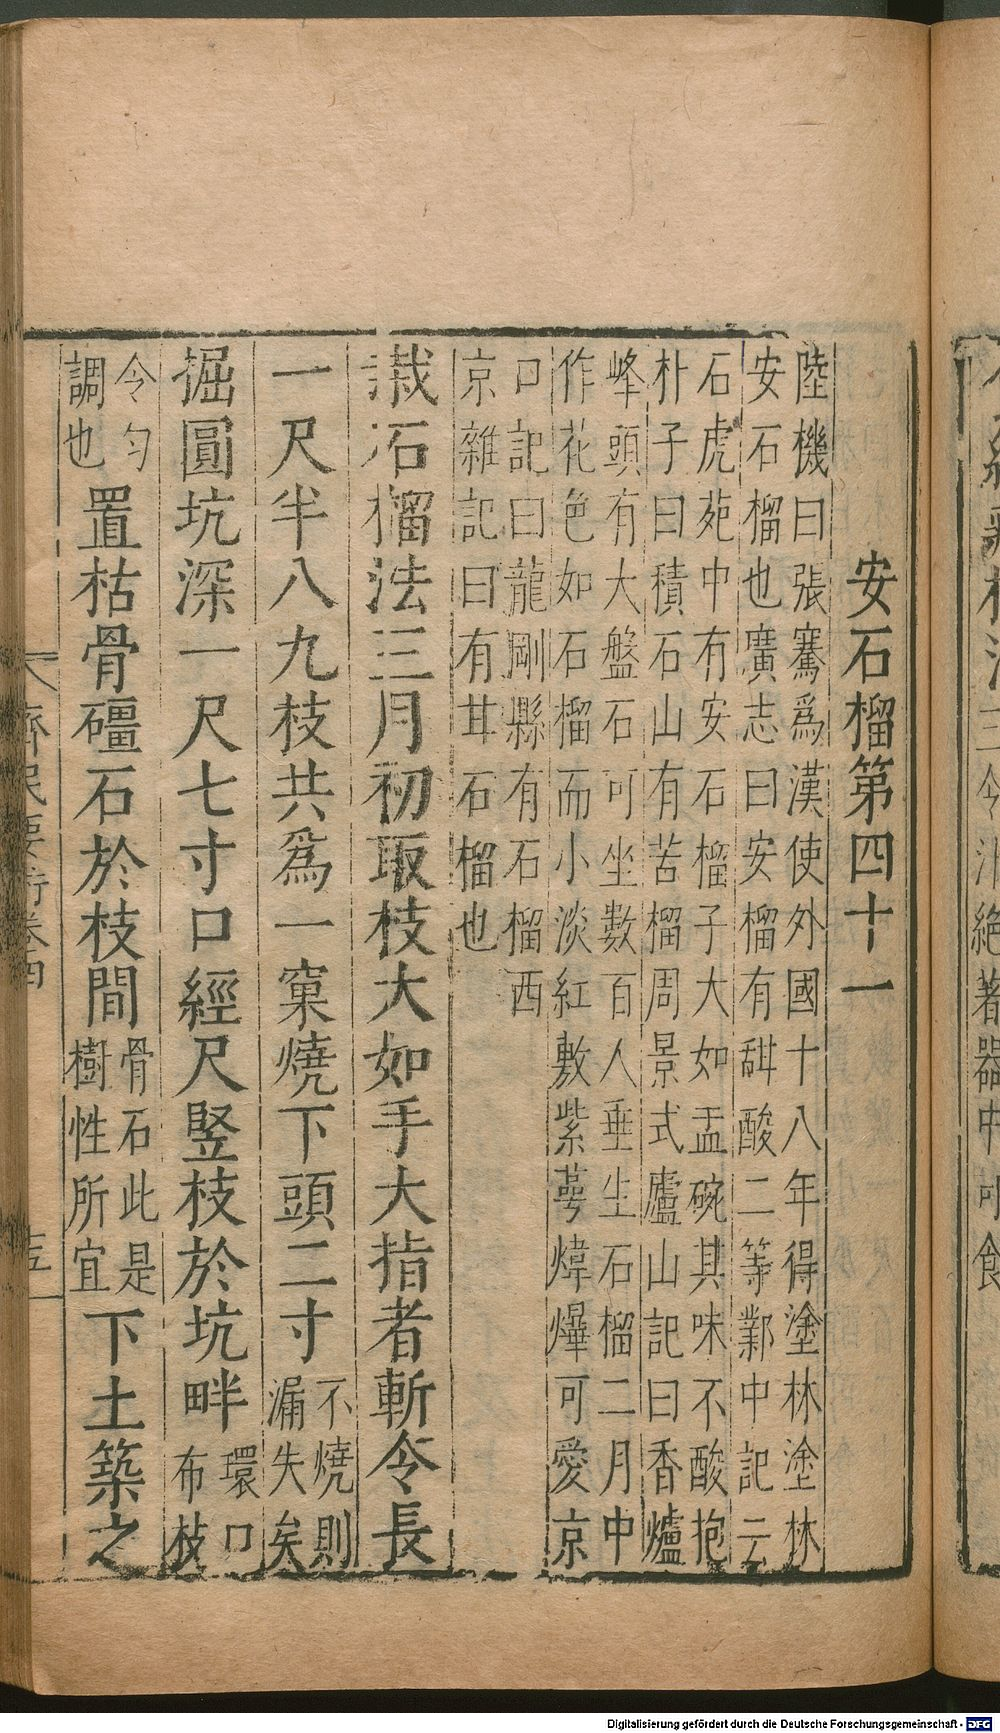 安石榴第四十一
陸機曰張騫爲漢使外國十八年得塗林塗林
安石榴也廣志曰安榴有甜酸二等鄴中記云
石虎苑中有安石榴子大如盂碗其味不酸抱
朴子曰積石山有苦榴周景式廬山記曰香爐
峰頭有大盤石可坐數百人垂生石榴二月中
作花色如石榴而小淡紅敷紫萼煒爗可愛京
口記曰龍剛縣有石榴西
京雜記曰有甘石榴也
栽石榴法三月初取枝大如手大指者斬令長
一尺半八九枝共爲一窠燒下頭二寸
不燒則
漏失矣
掘圓坑深一尺七寸口經尺竪枝於坑畔
環口
布枝
令勻
調也
置枯骨礓石於枝間
骨石此是
樹性所宜
下土築之
齊民要術卷四
五
Digitalisierung gefördert durch die Deutsche Forschungsgemeinschaft - DFG